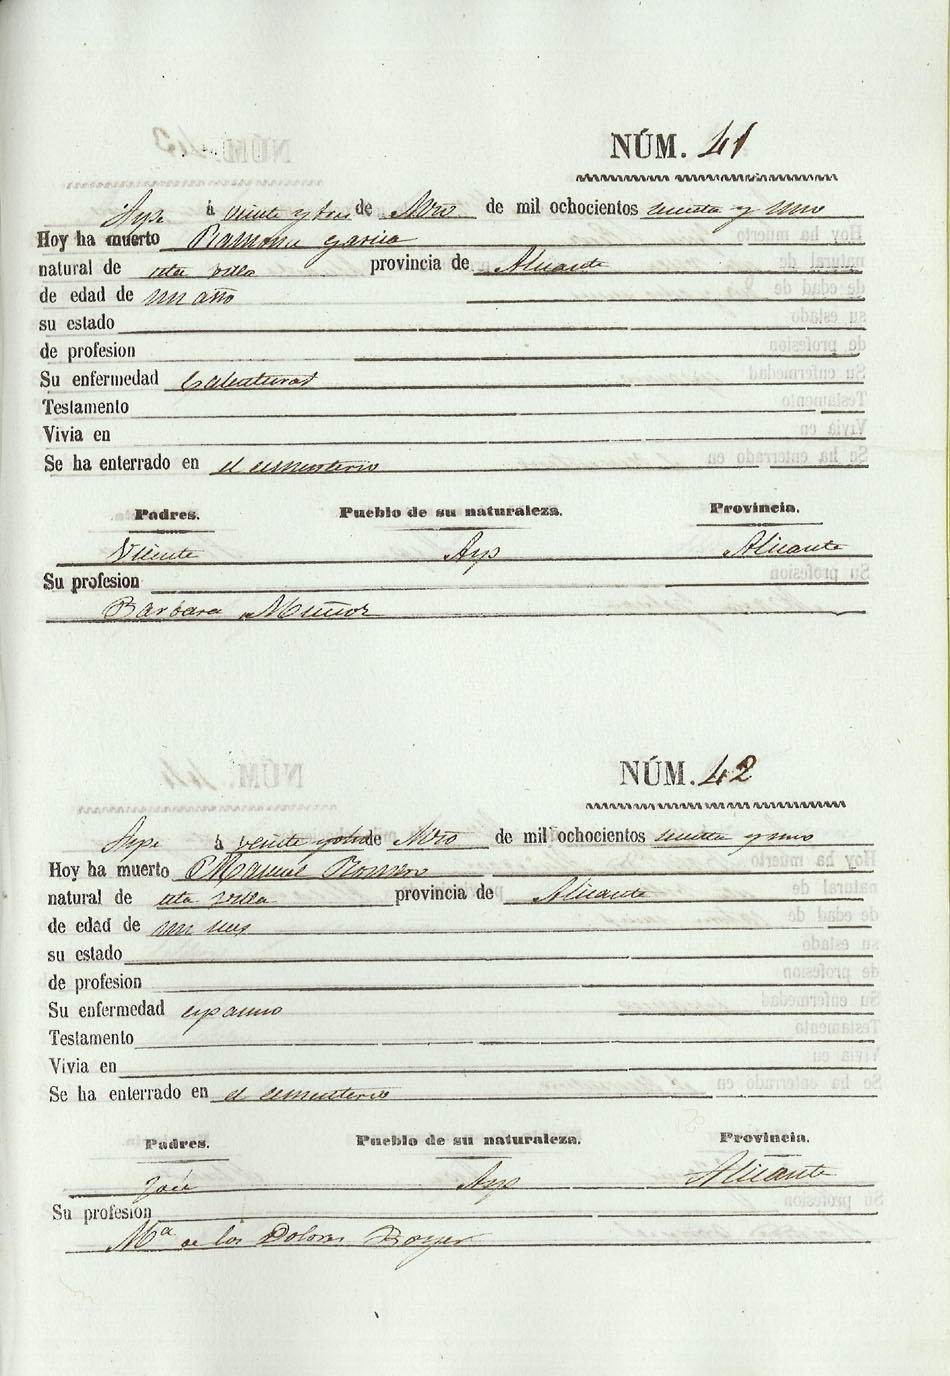 NÚM. 41
Aspe á veinte y tres de Abro de mil ochocientos cuenta y uno
Hoy ha muerto Ramona Garcia
natural de esta villa provincia de Alicante
de edad de un año
su estado
de profesion
Su enfermedad Calenturas
Testamento
Vivia en
Se ha enterrado en el cementerio
Padres. Pueblo de su naturaleza. Provincia.
Vicente Asp Alicante
Su profesion
Barbara Muñoz
NÚM. 42
Aspe á veinte y ocho de de mil ochocientos y uno
Hoy ha muerto Manuel Romero
natural de esta villa provincia de Alicante
de edad de un mes
su estado
de profesion
Su enfermedad espasmo
Testamento
Vivia en
Se ha enterrado en el cementerio
Padres. Pueblo de su naturaleza. Provincia.
José Asp Alicante
Su profesion
Mª de los Dolores Boyer